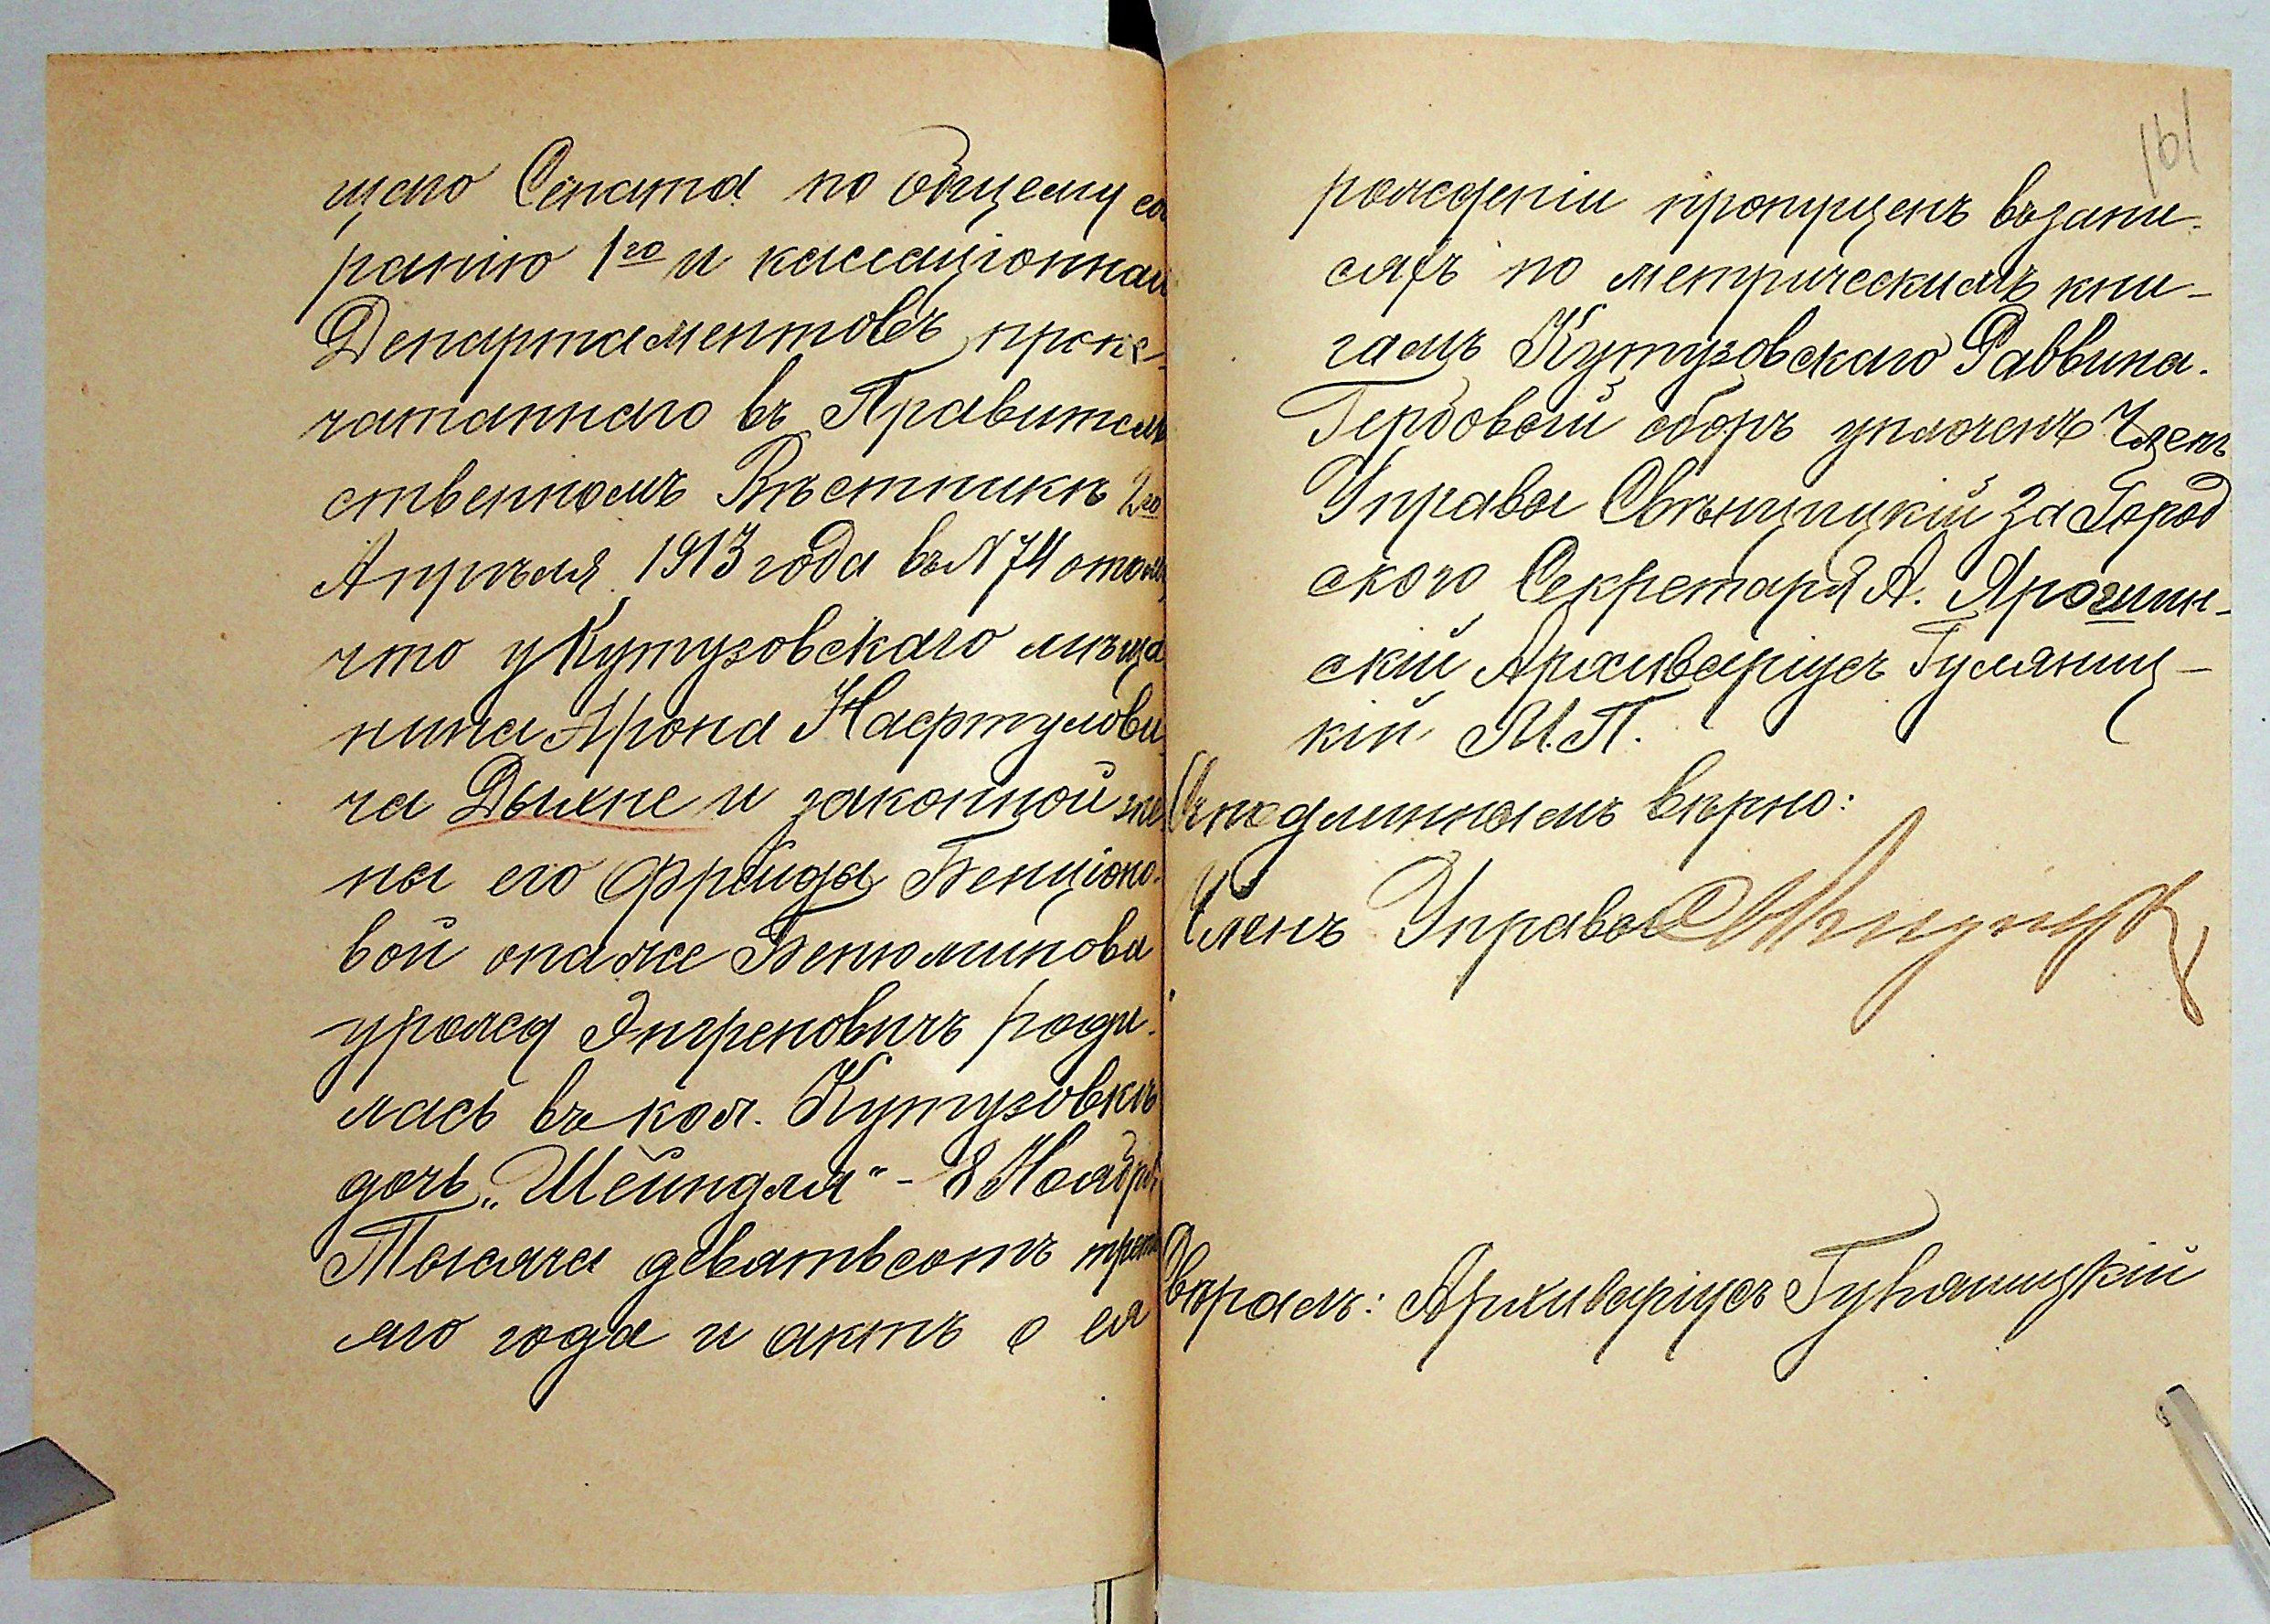 щаго Сената по общему со
ранію 1го и кассаціонная
Департаментовъ, пропе-
чатаннаго въ Правитель
ственномъ Вѣстникѣ 2го
Апрѣля 1913 года въ N 74 о томъ,
что у Кутузовскаго мѣща
нина Арона Нафтулови
ча Дыхне и законной же
на его Фрейда Бенціоно-
вой она же Бенюминова
урожд Энгреновичъ роди-
лась въ кол. Кутузовкѣ
дочь „Шейндля" - 8 Ноября
Тысяча девятьсотъ треть
яго года и актъ о ея
161
рожденіи пропущенъ въ запи-
сяхъ по метрическимъ кни-
гамъ Кутузовскаго Раввина.
Гербовый сборъ уплоченъ Членъ
Управы Свѣнцицкій За Город
ского Секретаря А. Ярошин-
скій Архиваріусъ Гуляниц-
кій М.П.
Съ подлиннымъ вѣрно:
Членъ Управы
Вѣрялъ: Архиваріусъ Гуляницкій